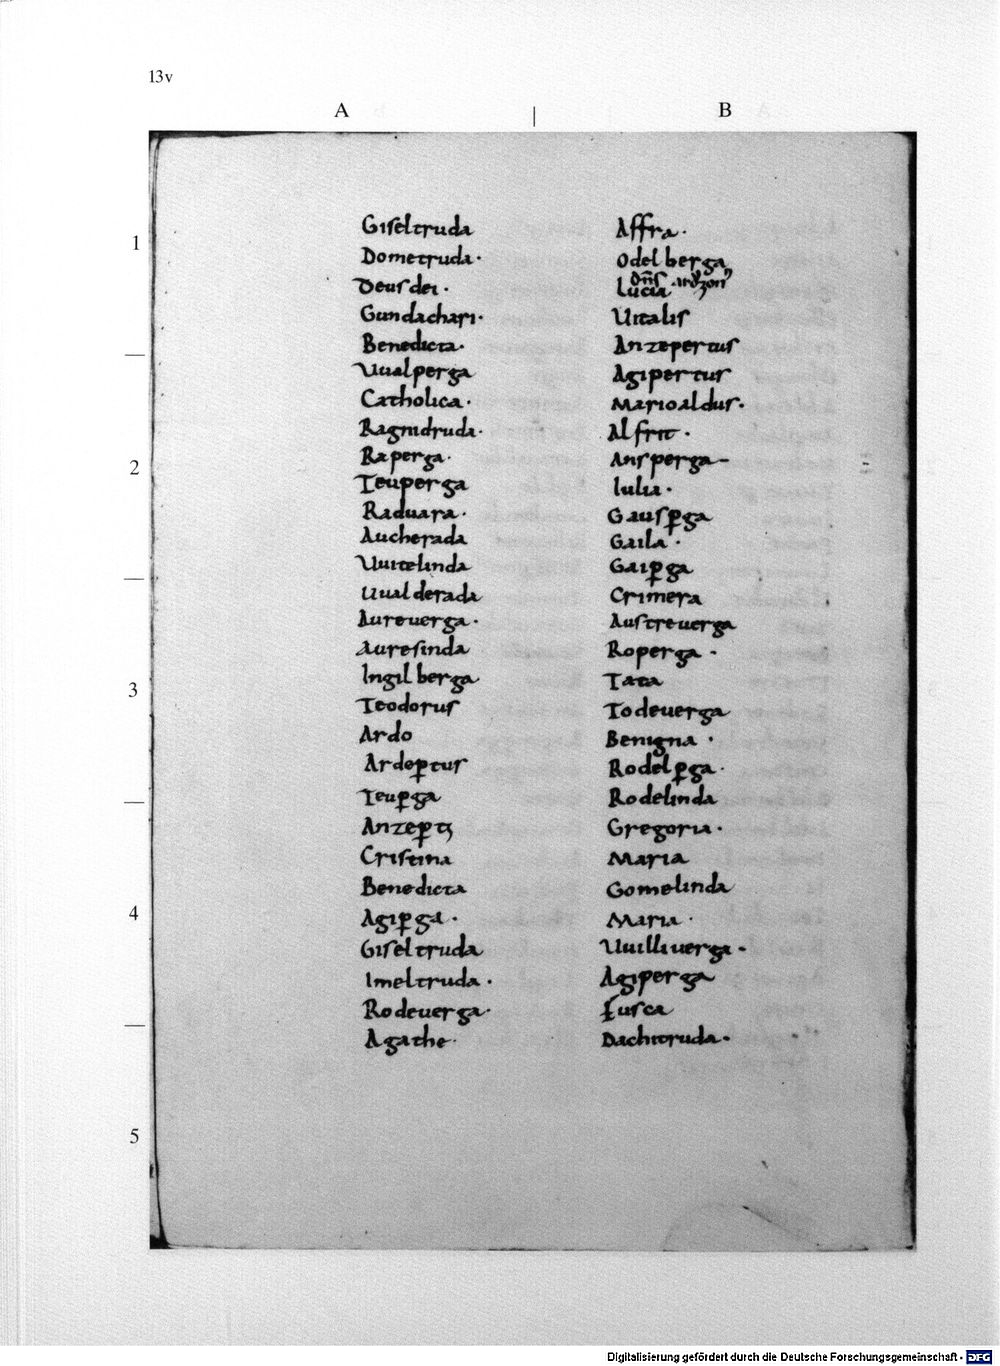 13v
A
B
1
2
3
4
5
Giseltruda
Dometruda·
Deusdei·
Gundachari·
Benedicta·
Uualperga
Catholica·
Ragnidruda·
Raperga·
Teuperga
Raduara·
Aucherada
Uuitelinda
Uualderada
Aureuerga·
Auresinda
Ingilberga
Teodorus
Ardo
Ardeꝑtus
Teuꝑga
Anzeꝑtꝫ
Cristina
Benedicta
Agiꝑga·
Giseltruda
Imeltruda·
Rodeuerga·
Agathe·
Affra·
Odelberga
dn̄s
Lucia
Uitalis
Anzepertus
Agipertus
Marioaldus·
Alfrit·
Ansperga
Iulia·
Gausꝑga
Gaila·
Gaiꝑga
Crimera
Austreuerga
Roperga·
Tata
Todeuerga
Benigna·
Rodelꝑga·
Rodelinda
Gregoria·
Maria
Gomelinda
Maria·
Uuilliuerga·
Agiperga
fusca
Dachitruda·
Digitalisierung gefördert durch die Deutsche Forschungsgemeinschaft - DFG